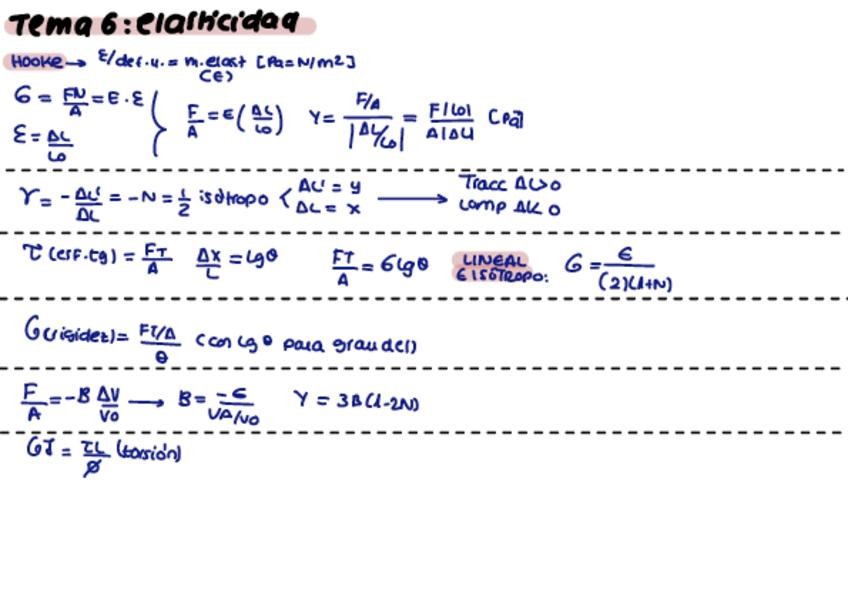 Tema 6: elasticidad
HOOKE → E/def.u. = m.elast [Pa = N/m²]
(E)
σ = FN/A = E · ε
ε = ΔL/L0
F/A = E (ΔL/L0)   Y = (F/A)/|ΔL/L0| = F|L0|/A|ΔL| [Pa]
γ = -ΔL'/ΔL = -N = 1/2 isótropo < ΔL' = y   ΔL = x → Tracc ΔL>0   Comp ΔL<0
τ (esf.tg) = FT/A   Δx/L = tgθ   FT/A = G tgθ   LINEAL E ISÓTROPO: G = E/(2)(1+N)
G(rigidez) = (FT/A)/θ (con tg θ para grandes)
F/A = -B ΔV/V0 → B = -E/(VA/V0)   Y = 3B(1-2N)
GJ = τL/φ (torsión)